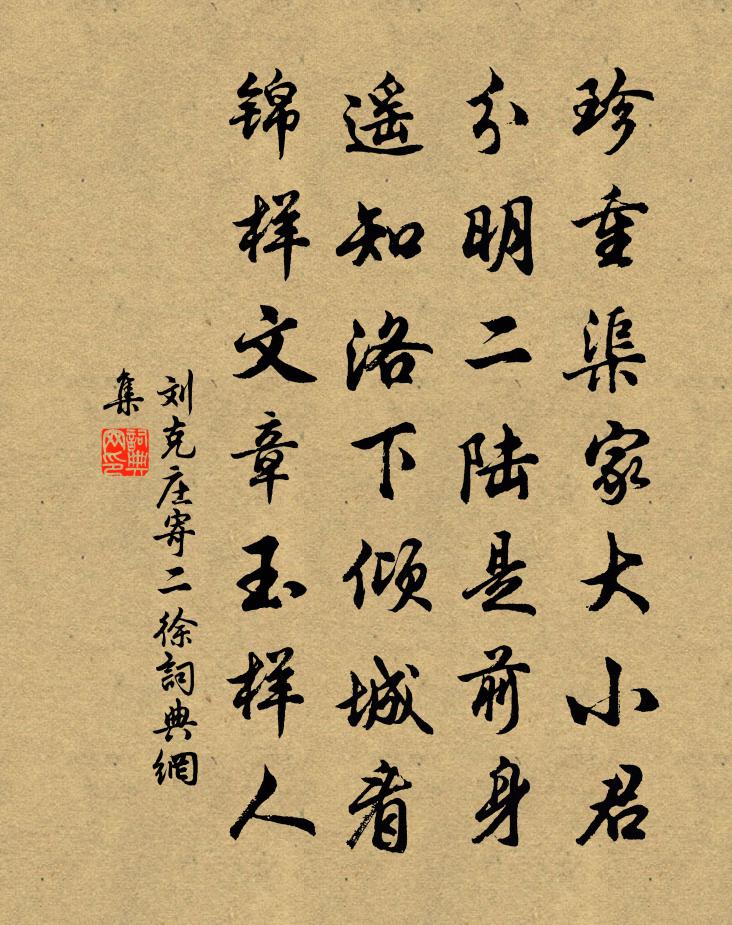 珍重渠家大小君
分明二陆是前身
遥知洛下倾城看
锦样文章玉样人
刘克庄寄二徐詞典網
集
詞典网印